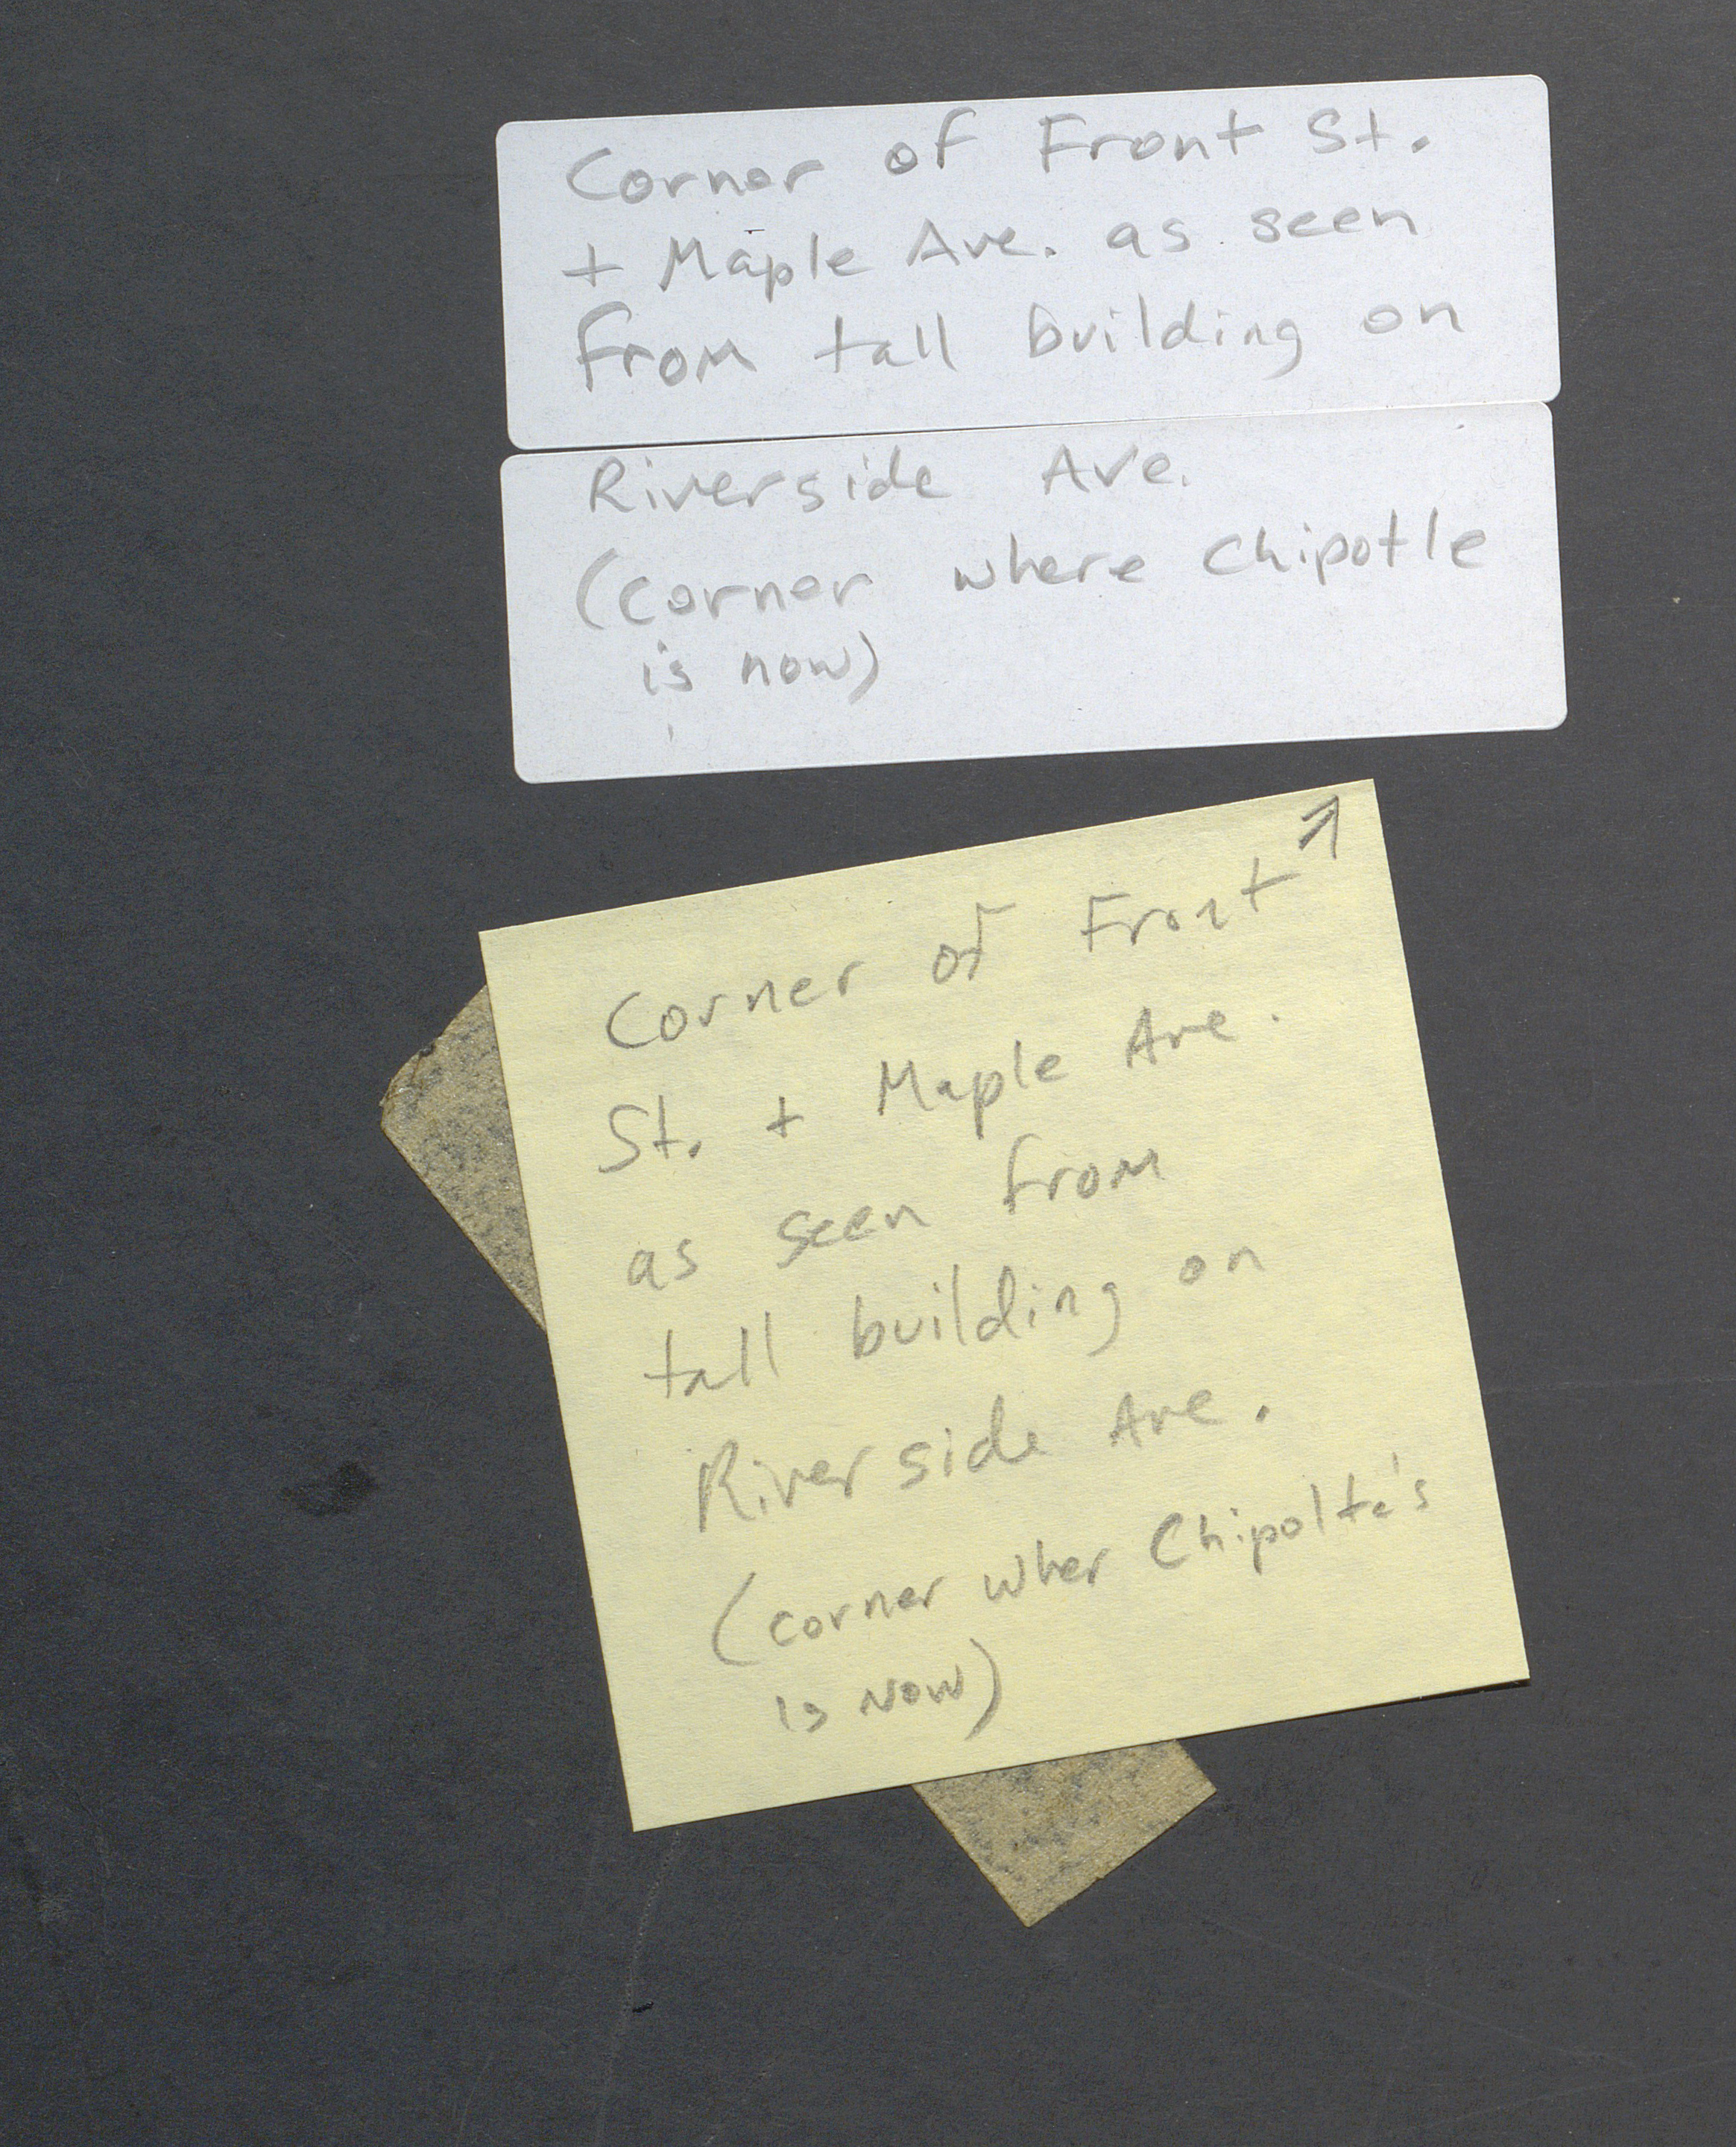 Corner of Front St.
+ Maple Ave. as seen
from tall building on
Riverside Ave.
(corner where Chipotle
is now)
7
Corner of Front
St. + Maple Ave.
as seen from
tall building on
Riverside Ave.
(corner wher Chipolte's
is now)